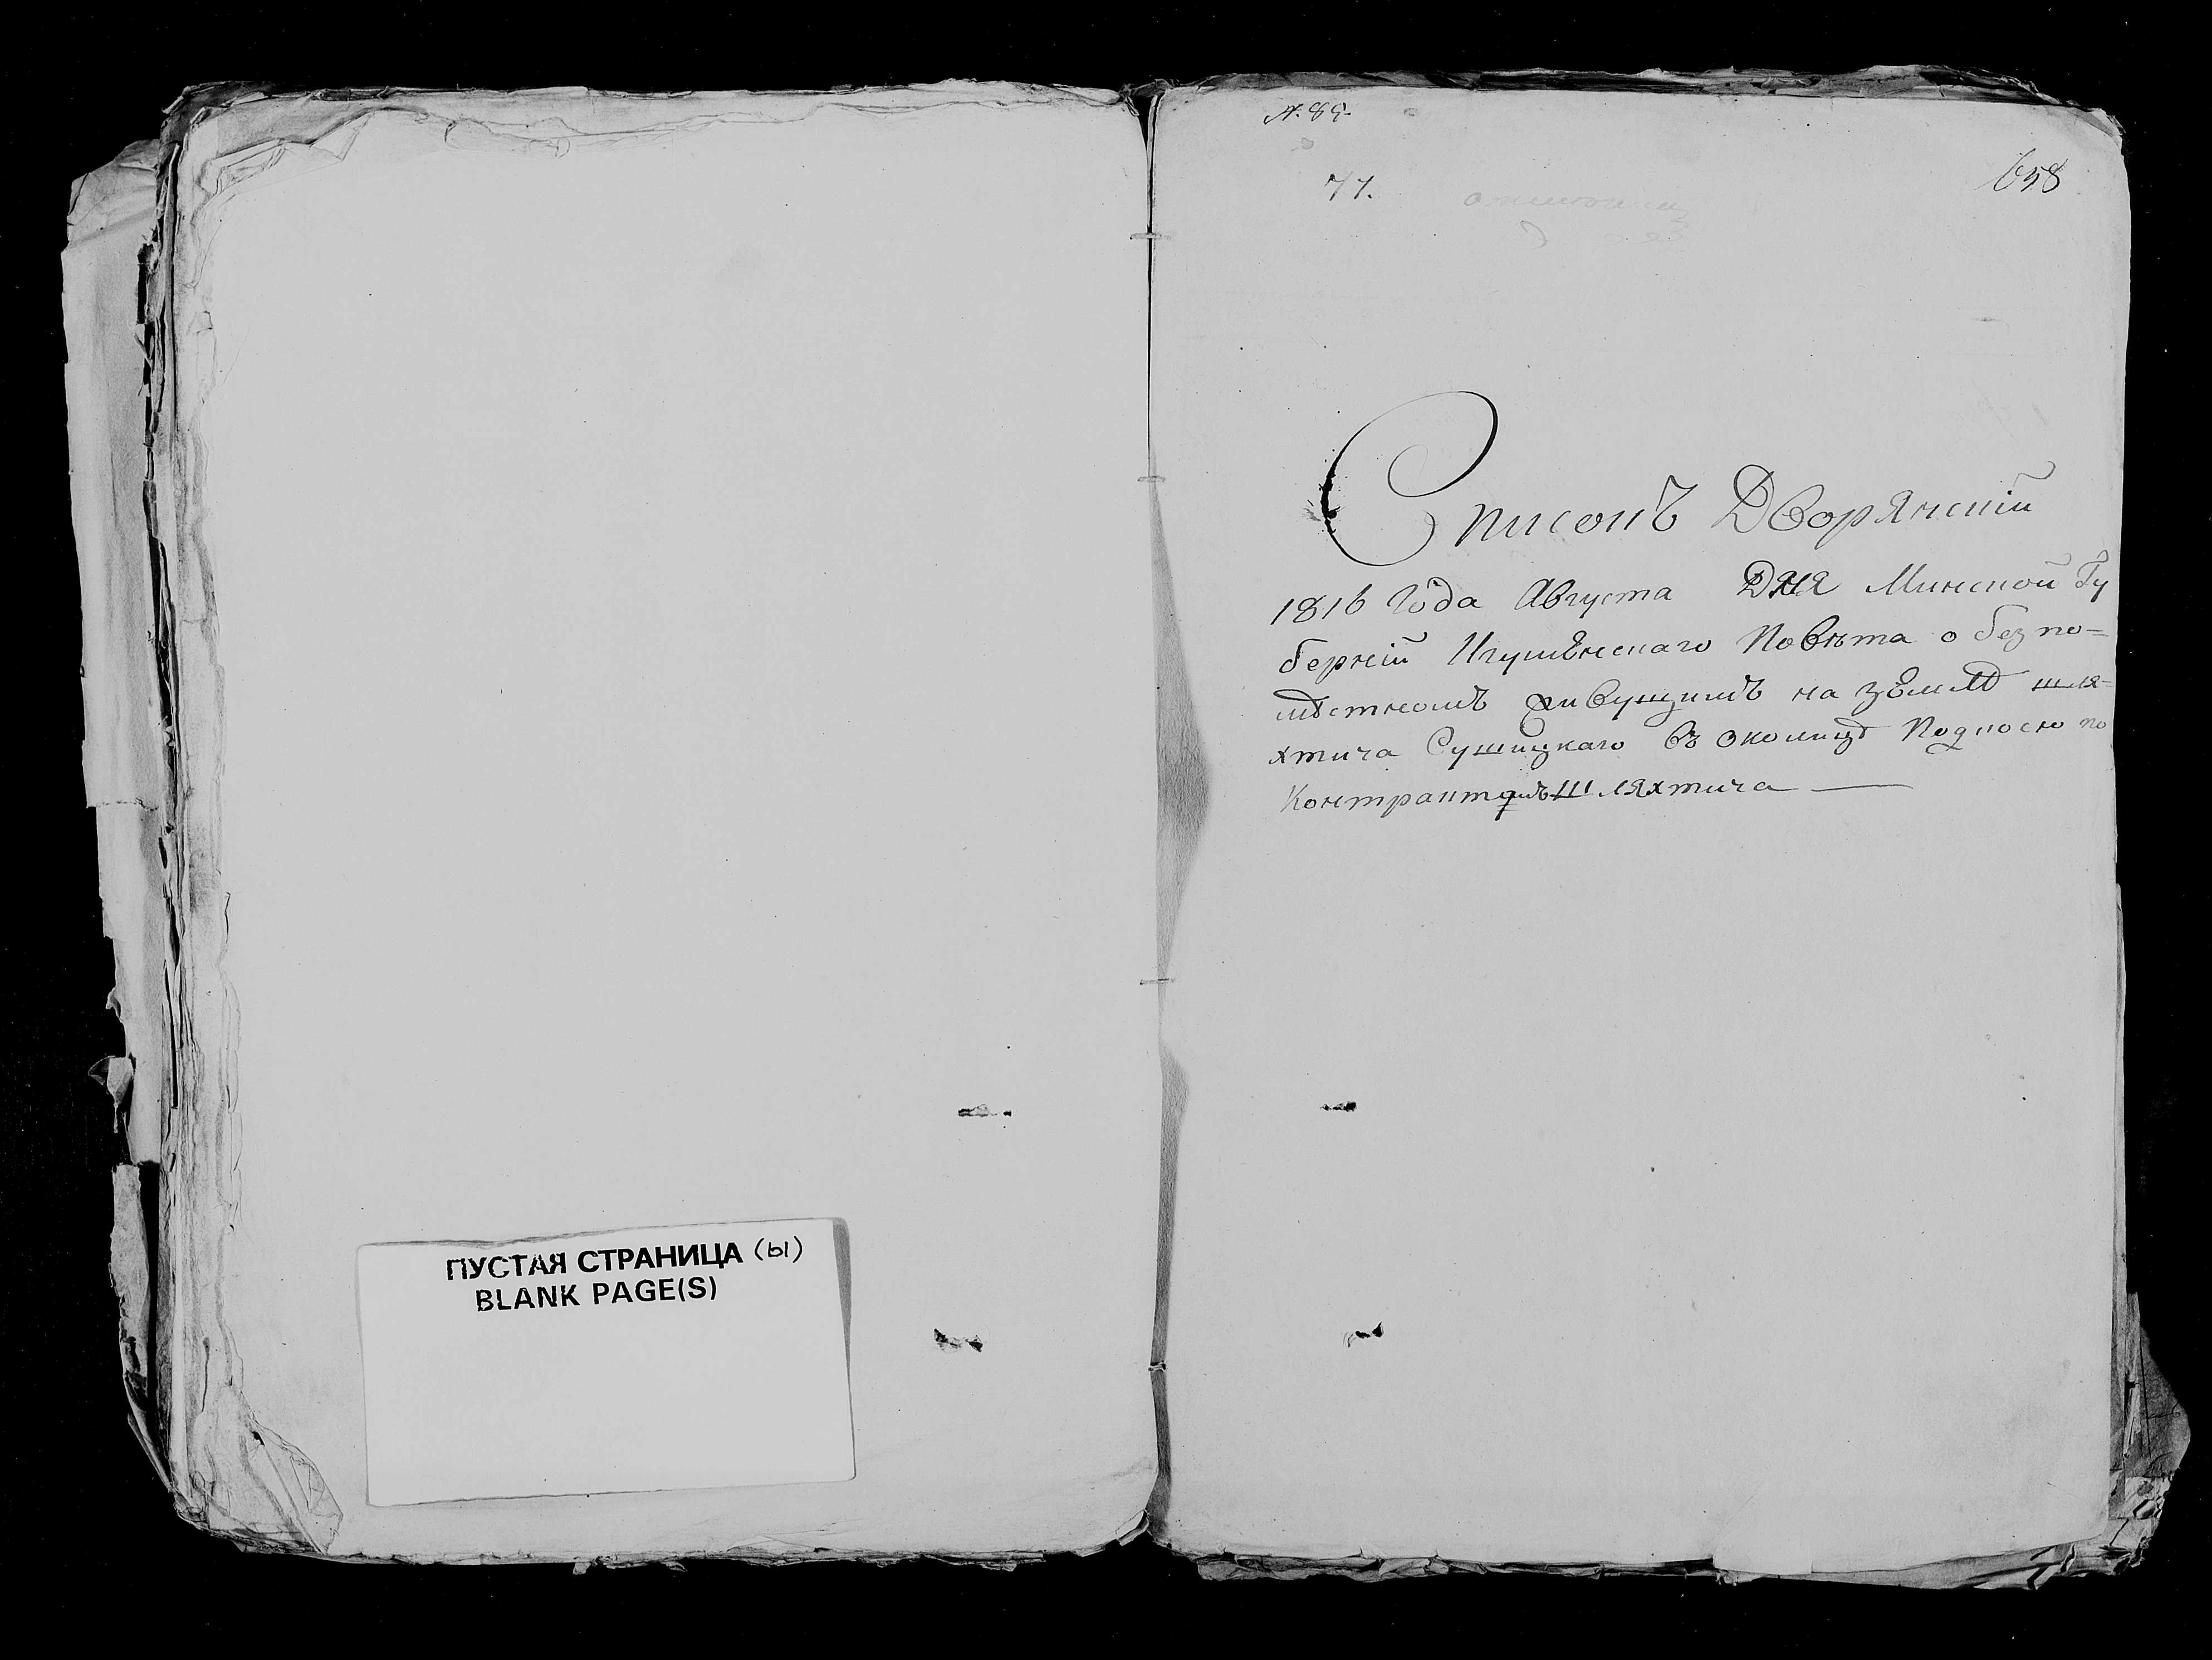 ПУСТАЯ СТРАНИЦА (ы)
BLANK PAGE(S)
N. 89.
77.
658
Списокъ Дворянскій
1816 Года Августа Дня Минской Гу
берніи Игуменскаго Повѣта о безпо=
мѣстномъ живущимъ на землѣ шля-
хтича Сушицкаго въ околицѣ Подкосю по
Контрактамъ шляхтича